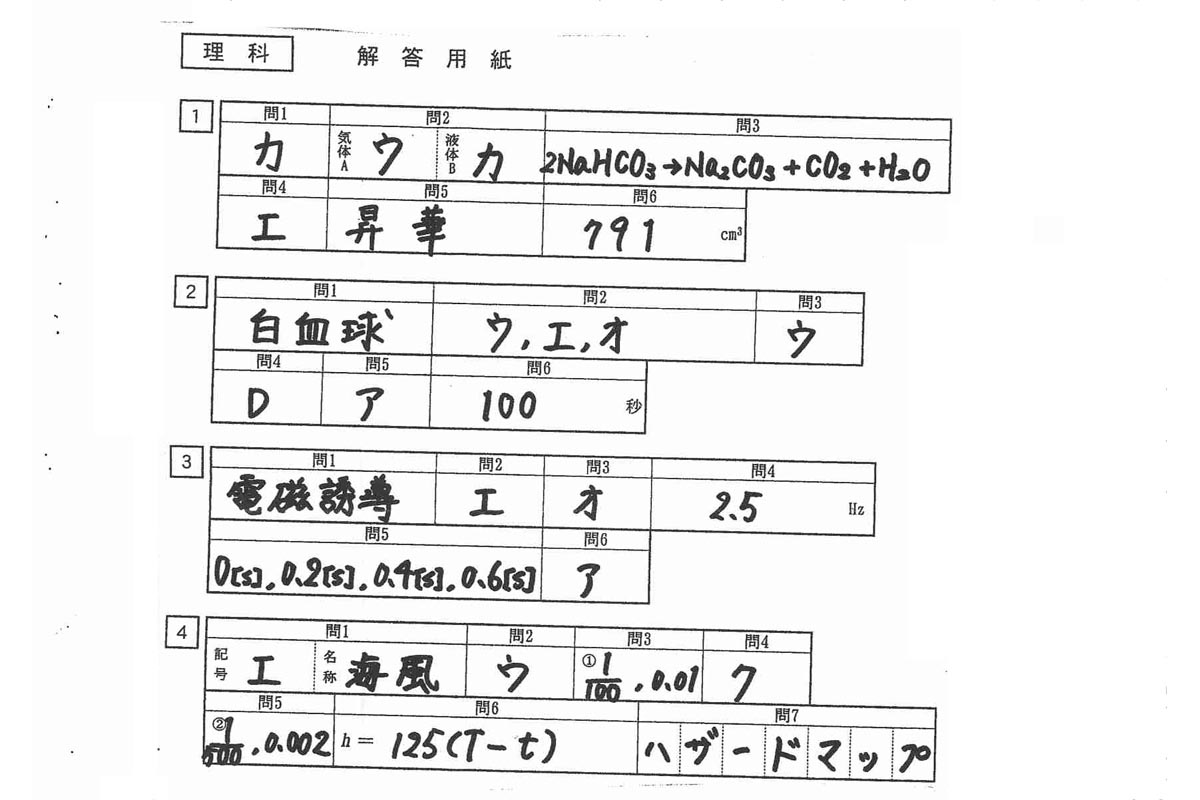 理科 解答用紙
1
問1 問2 問3
カ 気体A ウ 液体B カ 2NaHCO₃→Na₂CO₃+CO₂+H₂O
問4 問5 問6
エ 昇華 791 cm³
2
問1 問2 問3
白血球 ウ,エ,オ ウ
問4 問5 問6
D ア 100 秒
3
問1 問2 問3 問4
電磁誘導 エ オ 2.5 Hz
問5 問6
0[s],0.2[s],0.4[s],0.6[s] ア
4
問1 問2 問3 問4
記号 エ 名称 海風 ウ ① 1/100,0.01 ク
問5 問6 問7
② 1/500,0.002 h= 125(T-t) ハザードマップ